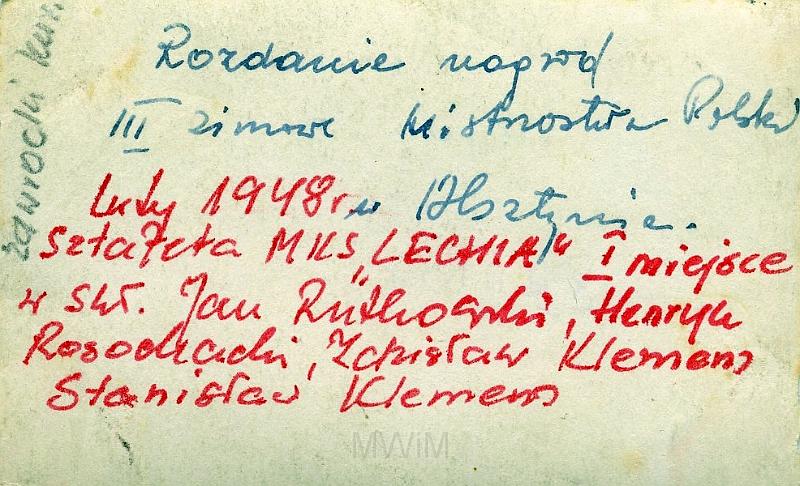 Rozdanie nagród
III zimowe Mistrzostwa Polski
Luty 1948r w Olsztynie.
Sztafeta MKS „LECHIA" I miejsce
w skł. Jan Rutkowski, Henryk
Rosochacki, Zdzisław Klemens
Stanisław Klemens
Zawrocki
MWiM